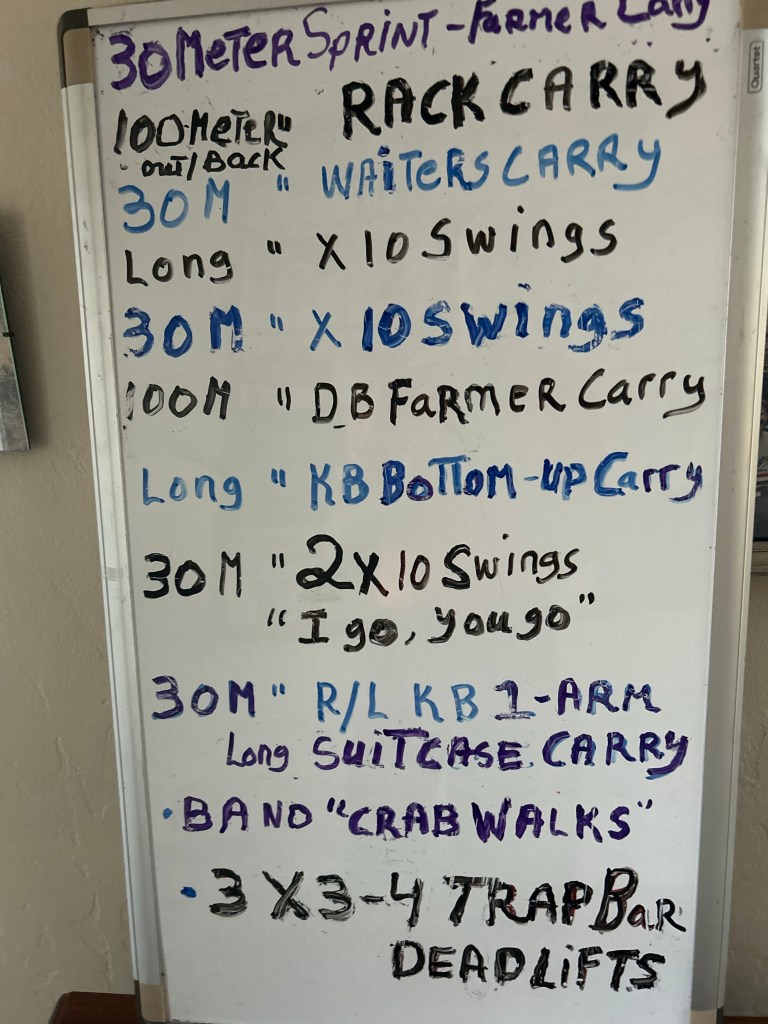 30 METER SPRINT - FARMER Carry
100 METER " RACK CARRY
OUT/BACK
30 M " WAITERS CARRY
Long " X 10 Swings
30 M " X 10 Swings
100 M " DB FARMER Carry
Long " KB BOTTOM-UP Carry
30 M " 2 X 10 Swings
"I go, you go"
30 M " R/L KB 1-ARM
Long SUITCASE CARRY
• BAND "CRAB WALKS"
• 3 X 3-4 TRAP BAR
DEADLIFTS
Quartet